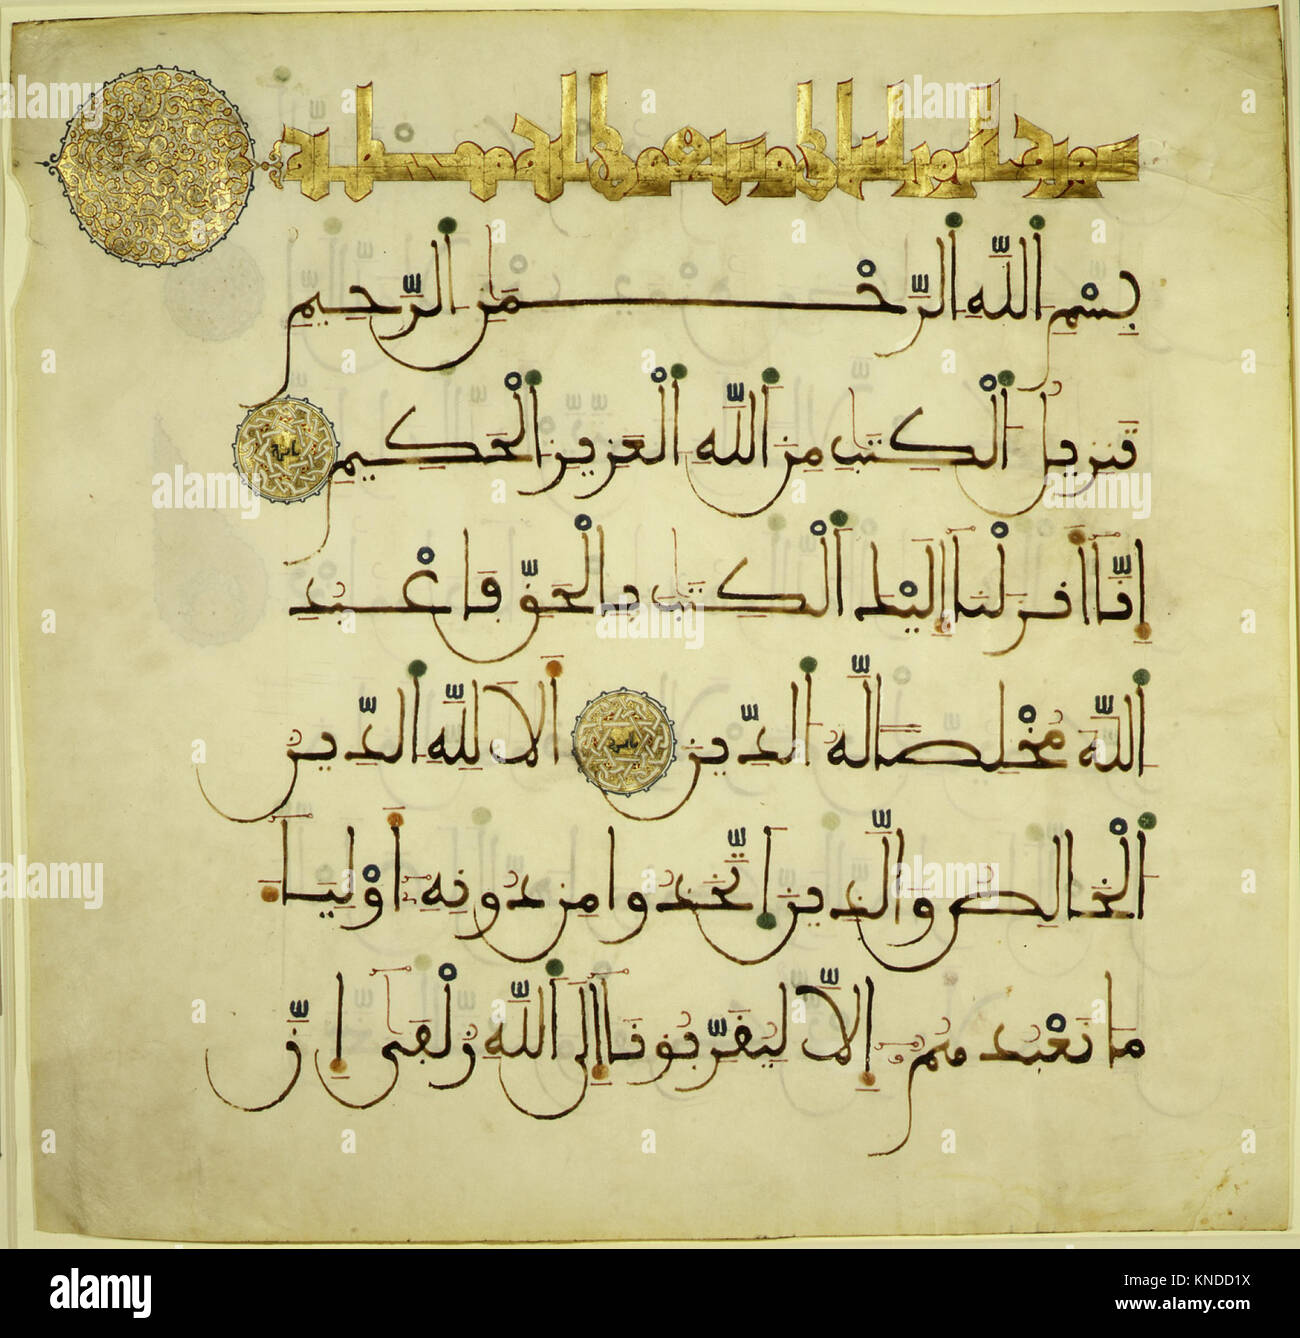 سورة الزمر
بِسْمِ اللَّهِ الرَّحْمَنِ الرَّحِيمِ
تَنزِيلُ الْكِتَبِ مِنَ اللَّهِ الْعَزِيزِ الْحَكِيمِ
إِنَّا أَنزَلْنَا إِلَيْكَ الْكِتَبَ بِالْحَقِّ فَاعْبُدِ
اللَّهَ مُخْلِصًا لَّهُ الدِّينَ أَلَا لِلَّهِ الدِّينُ
الْخَالِصُ وَالَّذِينَ اتَّخَذُوا مِن دُونِهِ أَوْلِيَاءَ
مَا نَعْبُدُهُمْ إِلَّا لِيُقَرِّبُونَا إِلَى اللَّهِ زُلْفَى إِنَّ
alamy
Image ID: KNDD1X
www.alamy.com